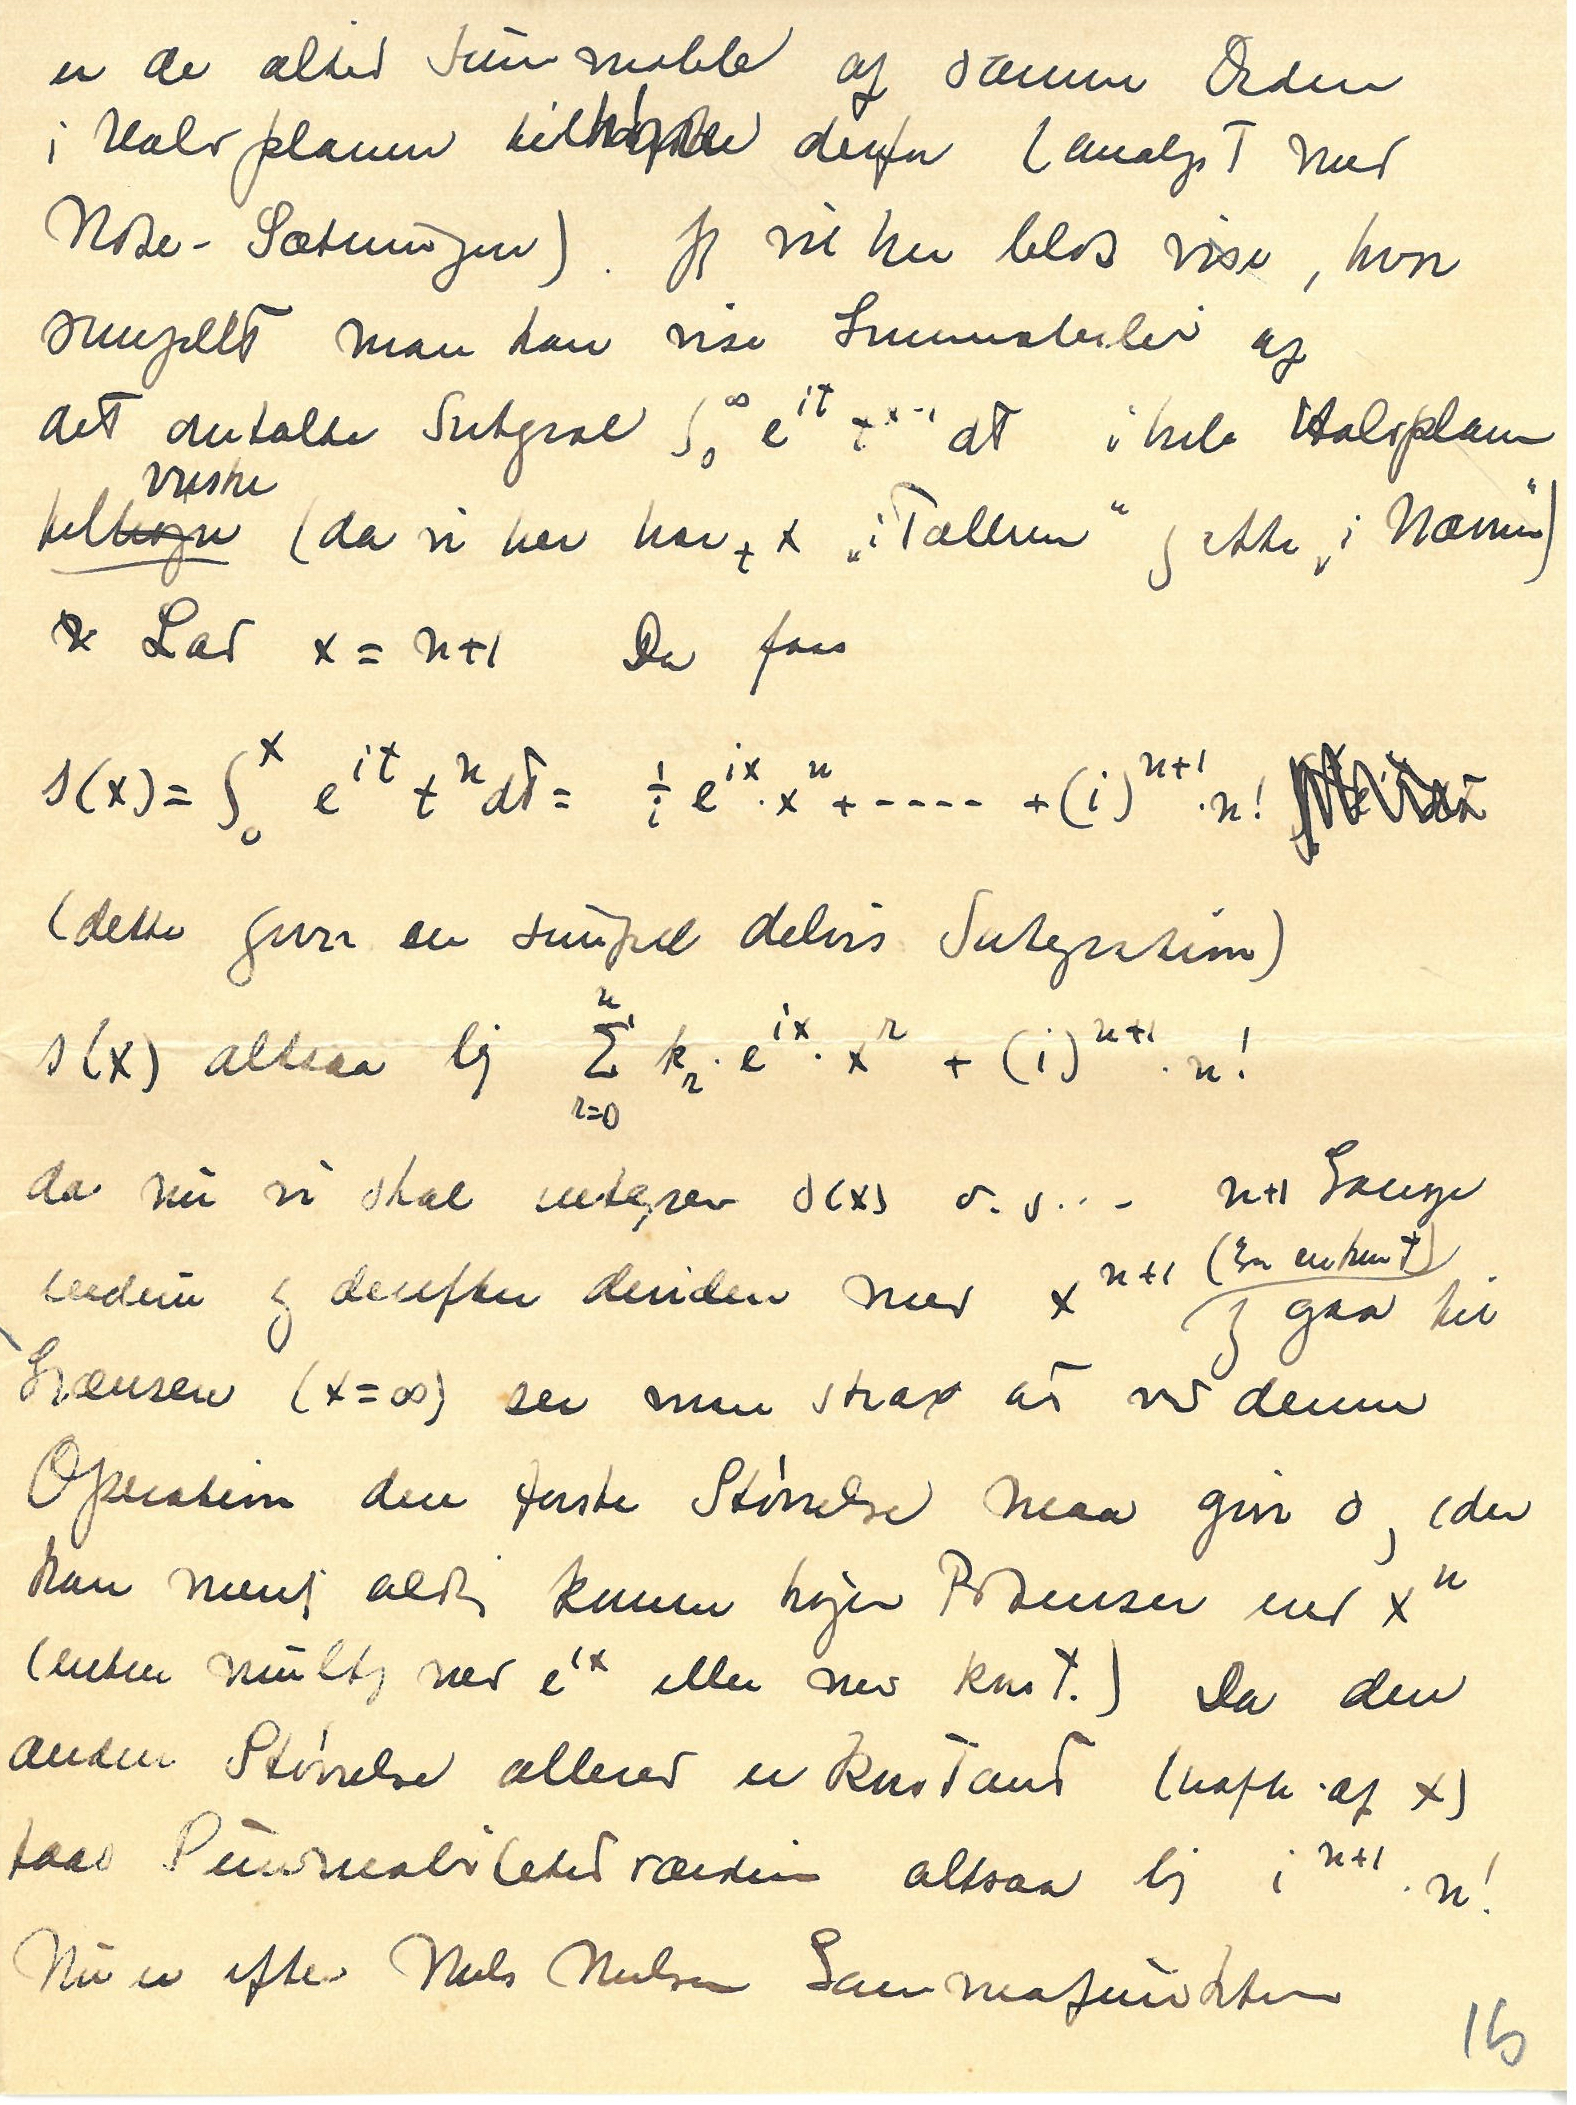 er de altid summable af samme Orden
i Halvplanen til derfor (analogt med
Note-Sætningen). Jeg vil her blos vise, hvor
simpelt man kan vise Summabilit af
det omtalte Integral ∫₀^∞ e^{it} t^{x-1} dt i hele Halvplanen
venstre
til (da vi her har t^x „i Tælleren" og ikke „i Nævn")
Lad x = n+1 Da faas
s(x) = ∫₀^x e^{it} t^n dt = 1/i e^{ix}·x^n + ----- + (i)^{n+1}·n!
(dette giver en simpel delvis Integration)
s(x) altsaa lig Σ_{r=0}^{n} k_r·e^{ix}·x^r + (i)^{n+1}·n!
da nu vi skal integrere s(x) o. s. .. n+1 Gange
(en enkelt)
endnu og derefter dividere med x^{n+1} og gaa til
Grænsen (x=∞) ser man strax at ved denne
Operation den første Størrelse maa give 0, (der
kan nemlig aldrig komme højere Potenser end x^n
(enten mult. med e^{ix} eller med konst.) Da den
anden Størrelse allerede er konstant (uafh. af x)
faas Summabilitetsværdien altsaa lig i^{n+1}·n!
Nu er efter Niels Nielsen Gammafunktionen
16